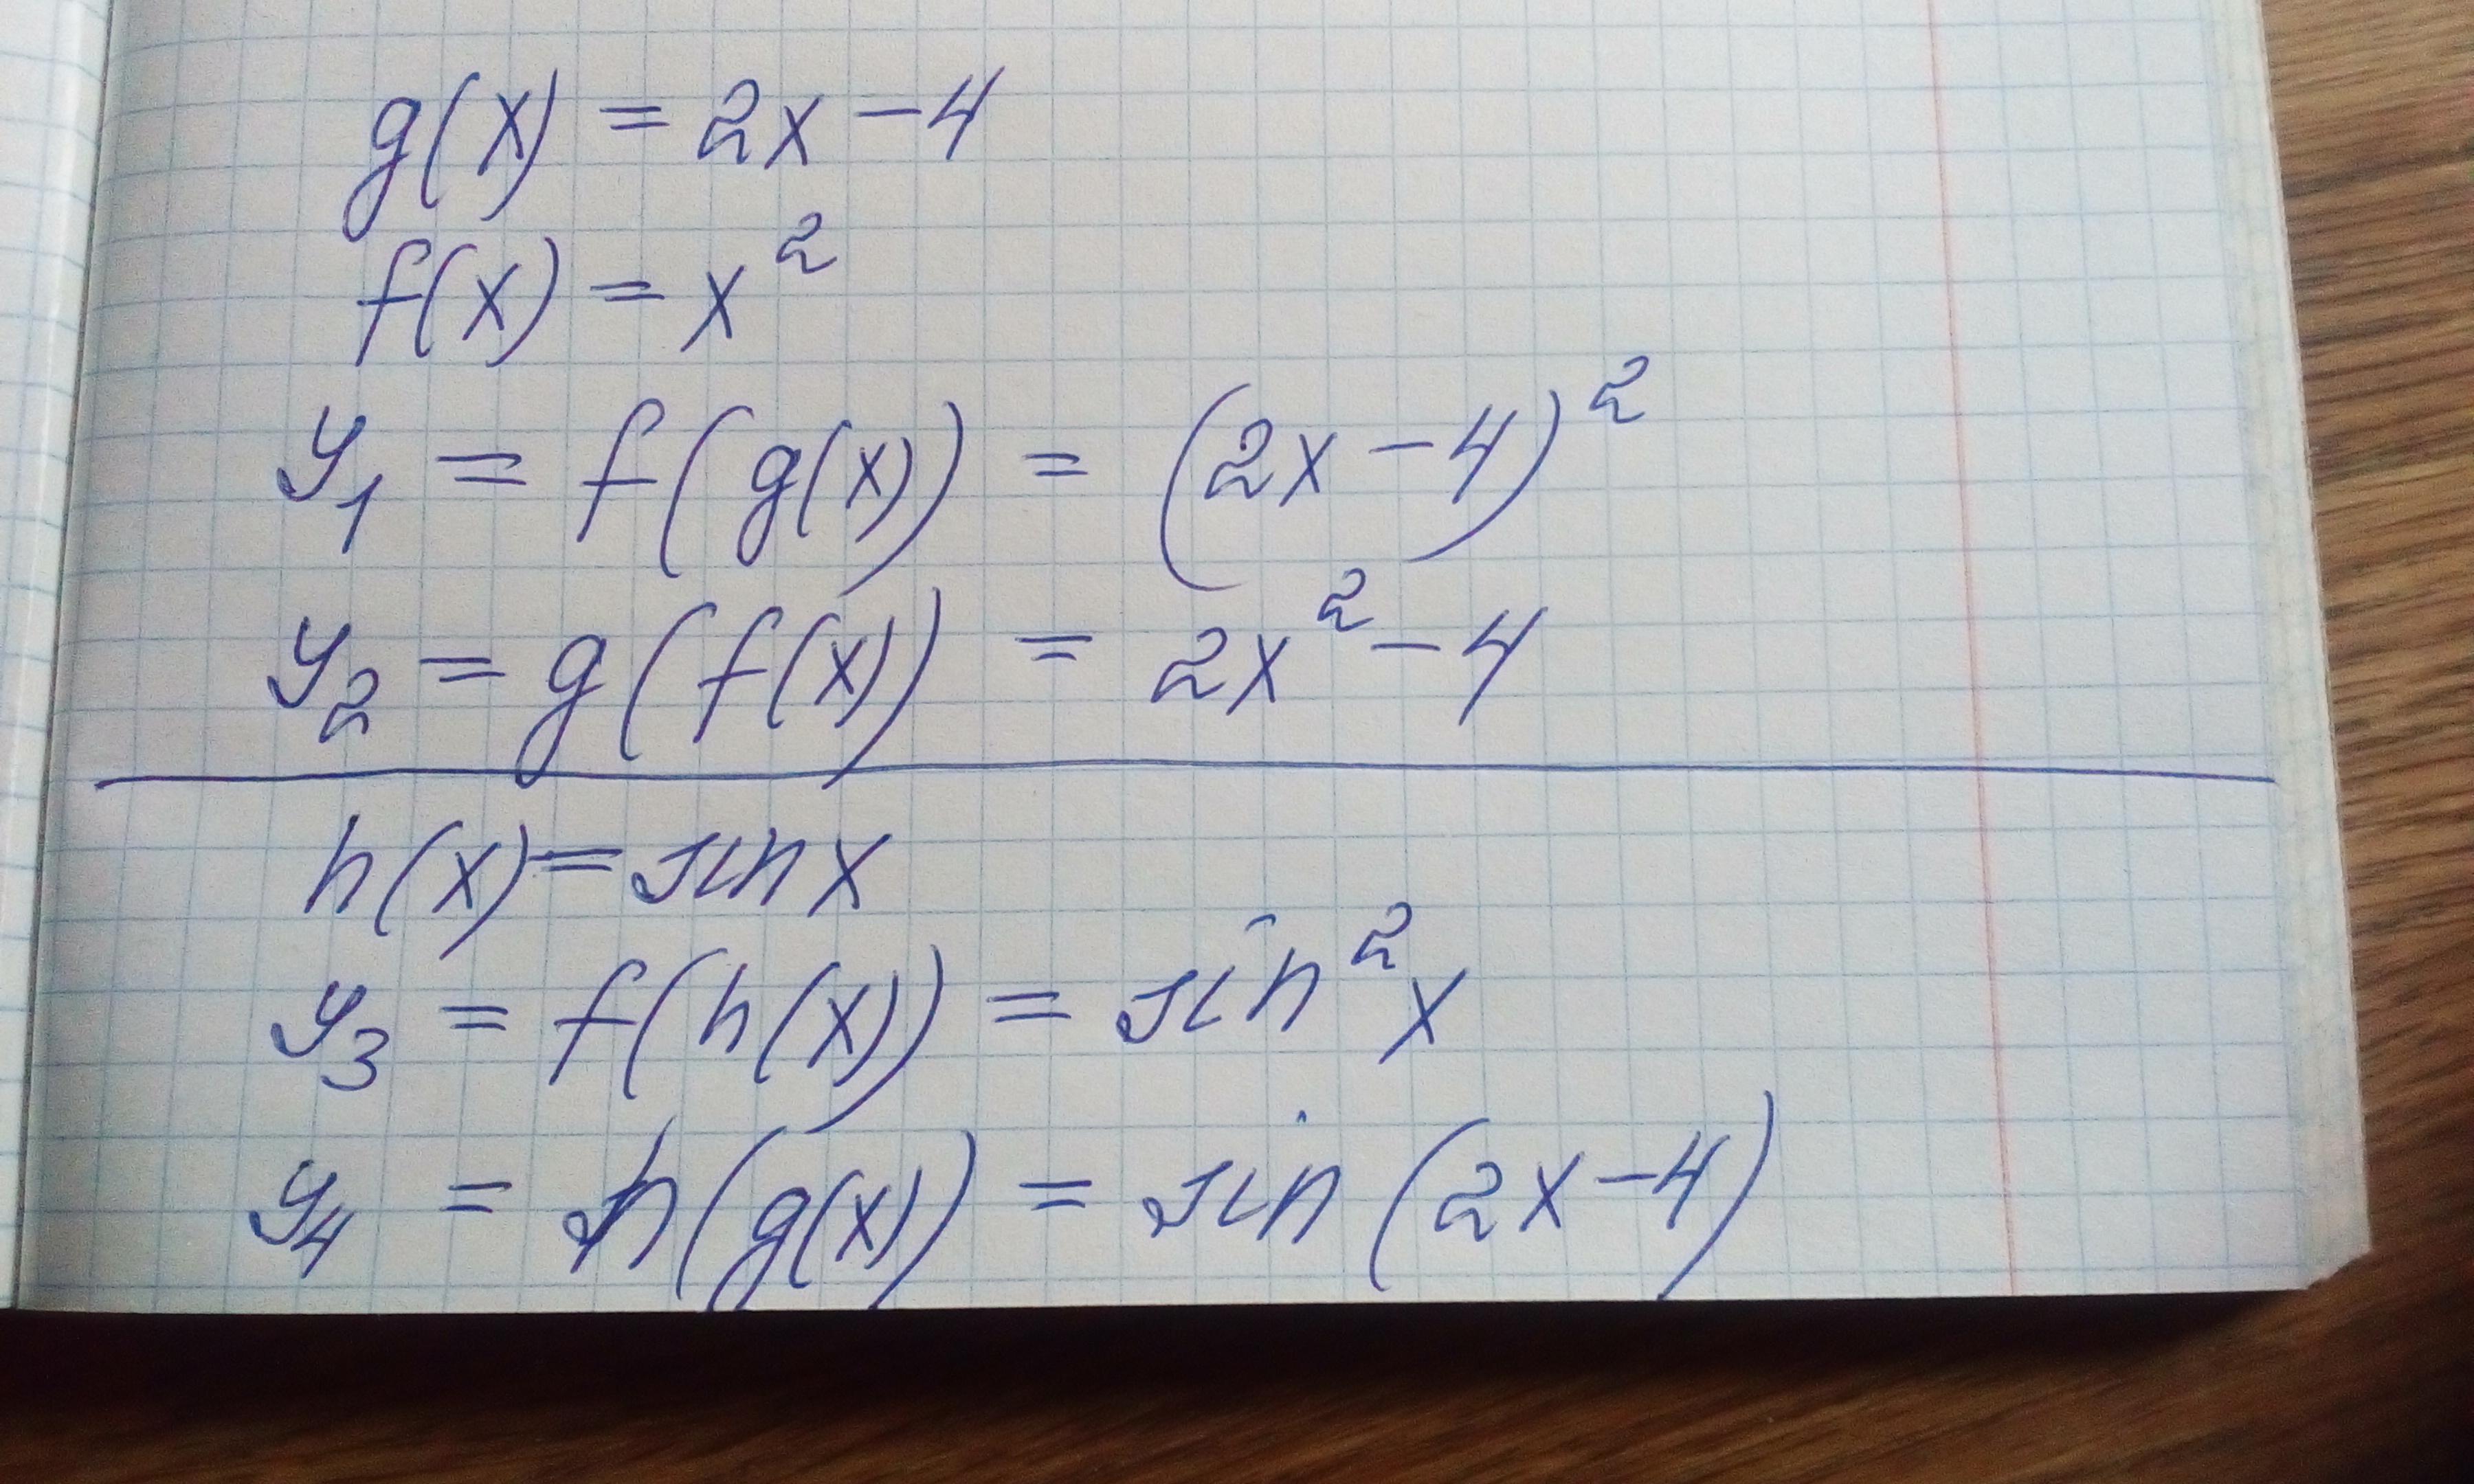 g(x) = 2x - 4
f(x) = x²
y₁ = f(g(x)) = (2x - 4)²
y₂ = g(f(x)) = 2x² - 4
h(x) = sin x
y₃ = f(h(x)) = sin² x
y₄ = h(g(x)) = sin (2x - 4)